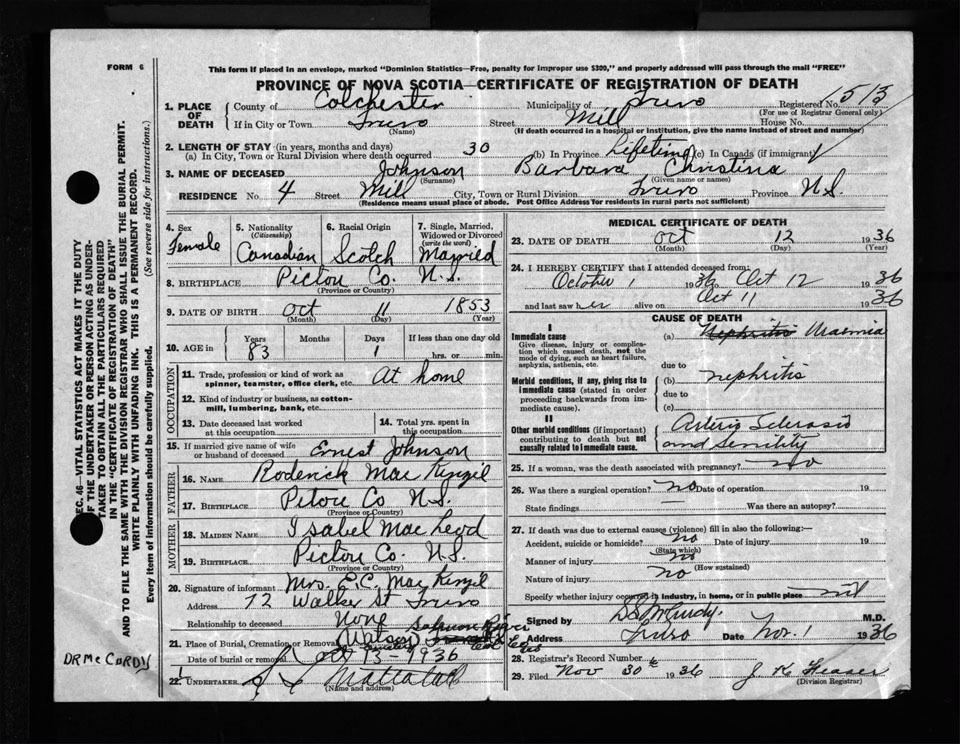 FORM 6
This form if placed in an envelope, marked "Dominion Statistics—Free, penalty for improper use $300," and properly addressed will pass through the mail "FREE"
PROVINCE OF NOVA SCOTIA—CERTIFICATE OF REGISTRATION OF DEATH
1. PLACE OF DEATH County of Colchester Municipality of Truro Registered No. 1513
(For use of Registrar General only)
If in City or Town Truro Street Mill House No.
(Name) (If death occurred in a hospital or institution, give the name instead of street and number)
2. LENGTH OF STAY (in years, months and days)
(a) In City, Town or Rural Division where death occurred 30 (b) In Province Lifetime (c) In Canada (if immigrant)
3. NAME OF DECEASED Johnson Barbara Christina
(Surname) (Given name or names)
RESIDENCE No. 4 Street Mill City, Town or Rural Division Truro Province N.S.
(Residence means usual place of abode. Post Office Address Tor residents in rural parts not sufficient)
4. Sex Female
5. Nationality (Citizenship) Canadian
6. Racial Origin Scotch
7. Single, Married, Widowed or Divorced (write the word) Married
8. BIRTHPLACE Pictou Co. N.S.
(Province or Country)
9. DATE OF BIRTH Oct 11 1853
(Month) (Day) (Year)
10. AGE in Years 83 Months Days 1 If less than one day old hrs. or min.
OCCUPATION
11. Trade, profession or kind of work as spinner, teamster, office clerk, etc. At home
12. Kind of industry or business, as cotton-mill, lumbering, bank, etc.
13. Date deceased last worked at this occupation
14. Total yrs. spent in this occupation
15. If married give name of wife or husband of deceased Ernest Johnson
FATHER
16. NAME Roderick MacKenzil
17. BIRTHPLACE Pitou Co N.S.
(Province or Country)
MOTHER
18. MAIDEN NAME Isabel MacLeod
19. BIRTHPLACE Pictou Co. N.S.
(Province or Country)
20. Signature of informant Mrs. E.C. MacKenzil
Address 72 Walker St Truro
Relationship to deceased None
21. Place of Burial, Cremation or Removal (Watson) Salmon River
Date of burial or removal Oct 13-1936
22. UNDERTAKER Mattatall
(Name and address)
MEDICAL CERTIFICATE OF DEATH
23. DATE OF DEATH Oct 12 1936
(Month) (Day) (Year)
24. I HEREBY CERTIFY that I attended deceased from:
October 1 1936 Oct 12 1936
and last saw her alive on Oct 11 1936
CAUSE OF DEATH
I
Immediate cause (a) Nephritis Uraemia
Give disease, injury or complication which caused death, not the mode of dying, such as heart failure, asphyxia, asthenia, etc.
due to
Morbid conditions, if any, giving rise to immediate cause (stated in order proceeding backwards from immediate cause). (b) nephritis
due to
(c)
II
Other morbid conditions (if important) contributing to death but not causally related to immediate cause. Arterio Sclerosis and Senility
25. If a woman, was the death associated with pregnancy? no
26. Was there a surgical operation? no Date of operation 19
State findings Was there an autopsy?
27. If death was due to external causes (violence) fill in also the following:—
Accident, suicide or homicide? no Date of injury 19
(State which)
Manner of injury no
(How sustained)
Nature of injury no
Specify whether injury occurred in industry, in home, or in public place nil
Signed by D.S. McCurdy. M.D.
Address Truro Date Nov. 1 1936
28. Registrar's Record Number
29. Filed Nov 30 1936 J K Fraser
(Division Registrar)
SEC. 46—VITAL STATISTICS ACT MAKES IT THE DUTY
OF THE UNDERTAKER OR PERSON ACTING AS UNDERTAKER TO OBTAIN ALL THE PARTICULARS REQUIRED
IN THE "CERTIFICATE OF REGISTRATION OF DEATH"
AND TO FILE THE SAME WITH THE DIVISION REGISTRAR WHO SHALL ISSUE THE BURIAL PERMIT.
WRITE PLAINLY WITH UNFADING INK. THIS IS A PERMANENT RECORD.
Every item of information should be carefully supplied. (See reverse side for instructions.)
DR McCURDY